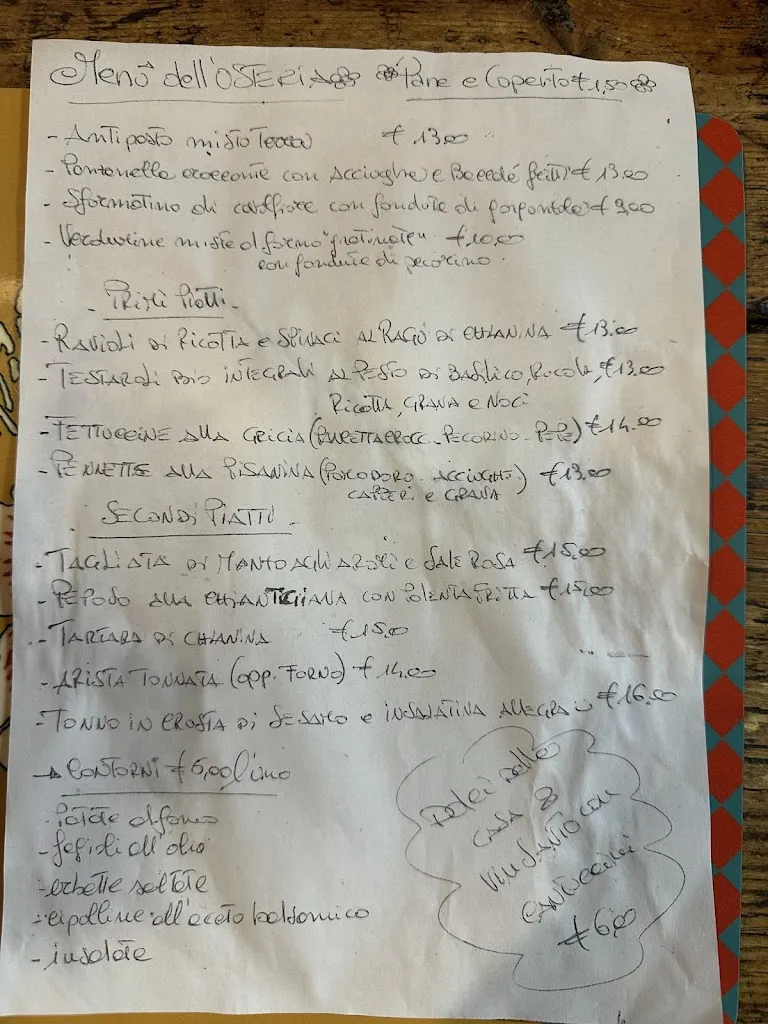 Menù dell'OSTERIA Pane e Coperto € 1,50
- Antipasto misto Terra € 13,00
- Pantanella croccante con Acciughe e Baccalà fritti € 13,00
- Sformatino di cavolfiore con fonduta di gorgonzola € 9,00
- Verdurine miste al forno "gratinate" € 10,00
con fonduta di pecorino
- Primi Piatti -
- RAVIOLI DI RICOTTA e SPINACI AL RAGÙ DI CHIANINA € 13,00
- TESTAROLI BIO INTEGRALI AL PESTO DI BASILICO, RUCOLA, € 13,00
RICOTTA, GRANA e NOCI
- FETTUCCINE ALLA GRICIA ( PECORINO - PEPE) € 14,00
- PENNETTE ALLA PISANINA (POMODORO - ACCIUGHE) € 13,00
CAPPERI e GRANA
SECONDI PIATTI
- TAGLIATA DI MANZO AGLI AROMI e SALE ROSA € 15,00
- PEPOSO ALLA CHIANTIGIANA CON POLENTA FRITTA € 15,00
- TARTARA DI CHIANINA € 15,00
- ARISTA TONNATA (opp. FORNO) € 14,00
- TONNO IN CROSTA DI SESAMO e INSALATINA ALLEGRA € 16,00
→ CONTORNI € 6,00 l'uno
- Patate al forno
- fagioli all'olio
- erbette saltate
- cipolline all'aceto balsamico
- insalate
Dolci della
CASA &
VINSANTO con
CANTUCCINI
€ 6,00